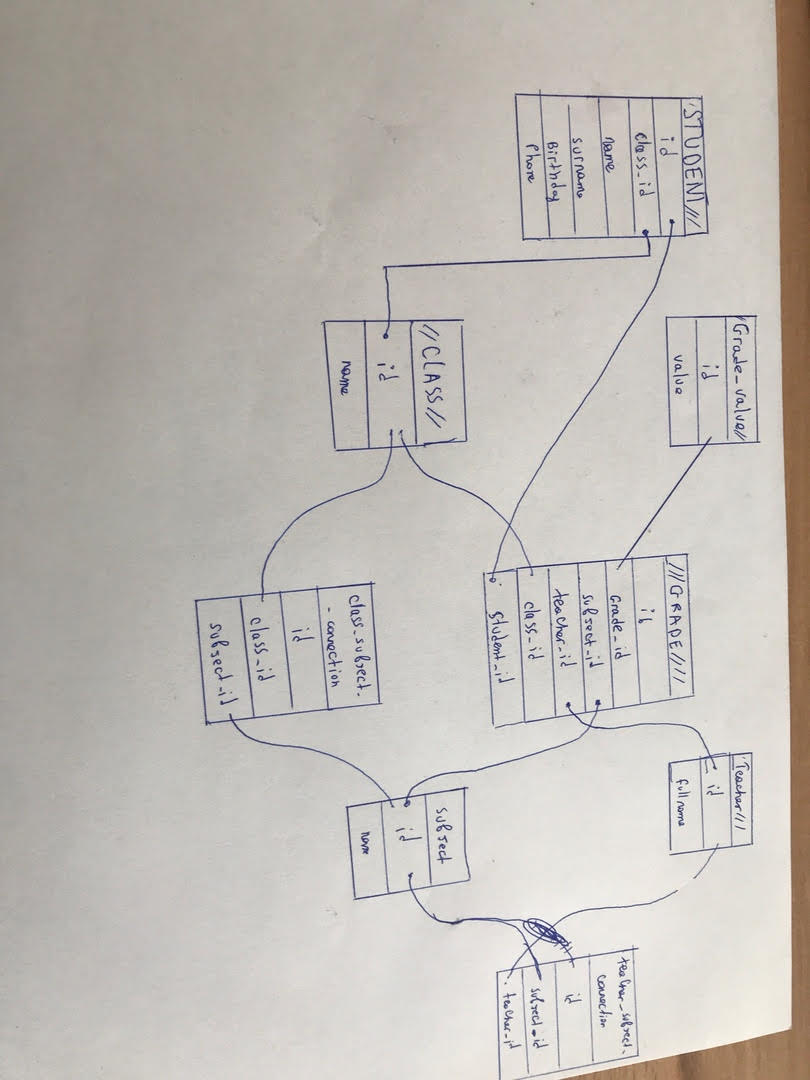 STUDENT
id
class_id
name
surname
Birthday
Phone
Grade_value
id
value
CLASS
id
name
GRADE
id
Grade_id
subject_id
teacher_id
class_id
student_id
class_subject-
- connection
id
class_id
subject_id
Teacher
id
fullname
subject
id
name
teacher_subject-
connection
id
subject_id
teacher_id